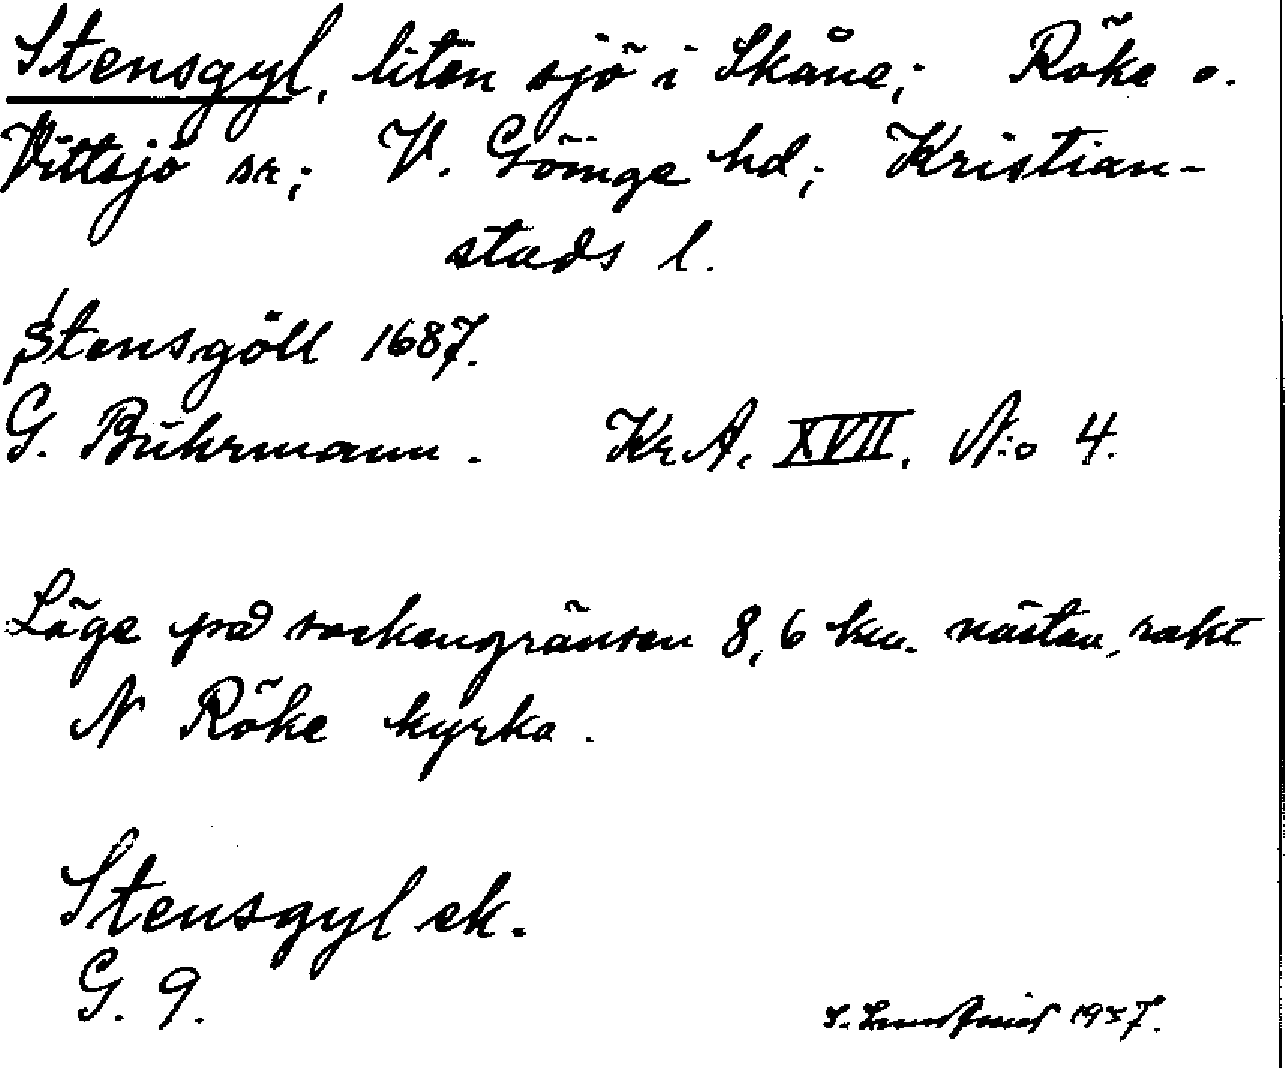 Stensgyl, liten sjö i Skåne; Röke o.
Vittsjö sn; V. Göinge hd; Kristian-
stads l.
Stensgöll 1687.
G. Buhrmann. Kr.A. XVII. N:o 4.
Läge på sockengränsen 8,6 km. nästan rakt
N Röke kyrka.
Stensgyl ek.
G. 9.